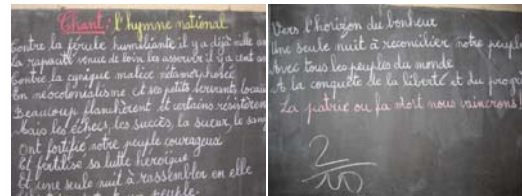 Chant: l'hymne national
Contre la férule humiliante il y a déjà mille an
la rapacité venue de loin les asservir il y a cent an
Contre la cynique malice métamorphosée
En néocolonialisme et ses petits servants locau
Beaucoup flanchèrent et certains résistèren
Mais les échecs, les succès, la sueur, le san
Ont fortifié notre peuple courageux
Et fertilisé sa lutte héroïque
Et une seule nuit a rassemblée en elle
peuple.
Vers l'horizon du bonheur
Une seule nuit a réconcilier notre peuple
Avec tous les peuples du monde
A la conquête de la liberté et du progr
La patrie ou la mort nous vaincrons!
2